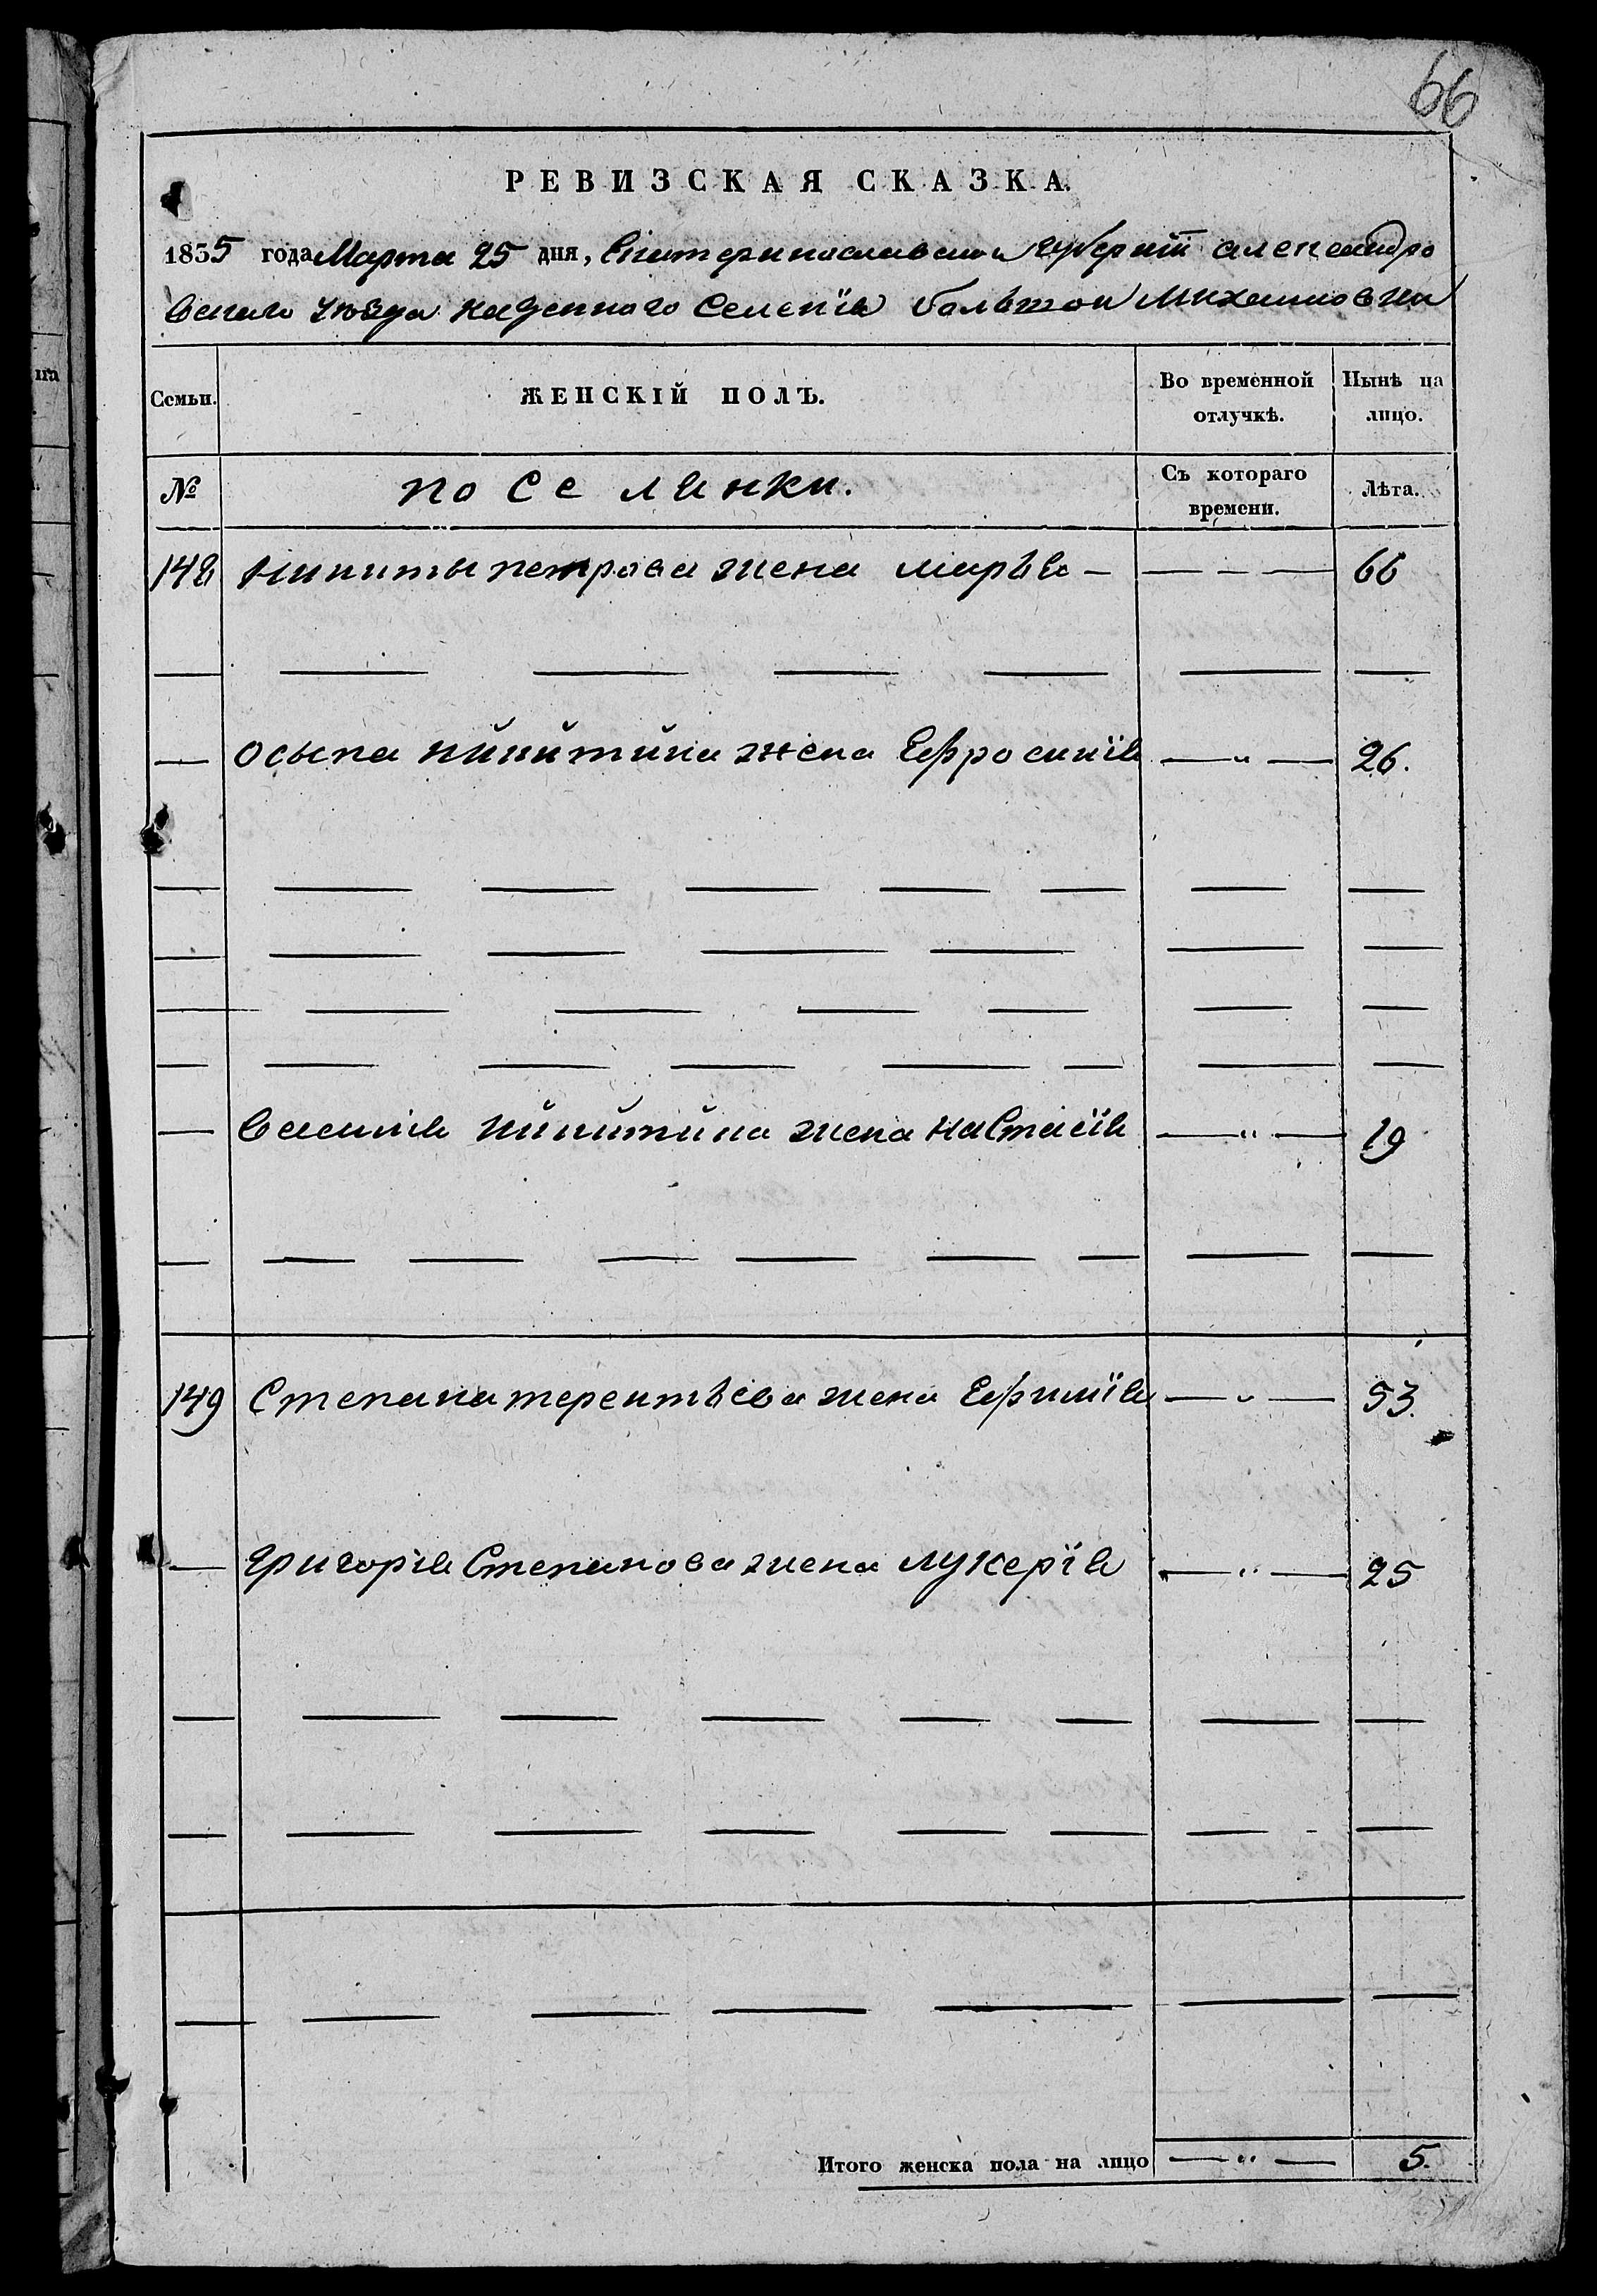 66
РЕВИЗСКАЯ СКАЗКА.
1835 года Марта 25 дня, Екатеринославской губерніи александро
вскаго уѣзда казенного Селенія большой Михайловки
на
Семьи.
ЖЕНСКІЙ ПОЛЪ.
Во временной отлучкѣ.
Нынѣ на лицо.
№
поселянки.
Съ котораго времени.
Лѣта.
148 никиты петрова жена марья — — — — 66
— осыпа никитина жена Ефросинія — " — 26.
— василия никитина жена настасія — " — 19
149 Степана терентьева жена Ефимія — " — 53.
— григорія Степанова жена лукерія — " — 25
Итого женска пола на лицо — " — 5.